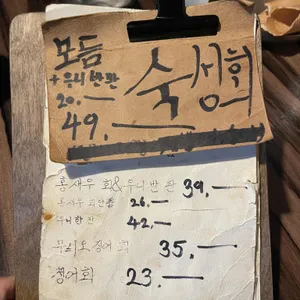 모듬 숙성회
+우니반판
20.—
49.—
홍새우 회&우니반판 39.—
홍새우 회 26.—
우니한판 42.—
무늬오징어 회 35.—
청어회 23.—